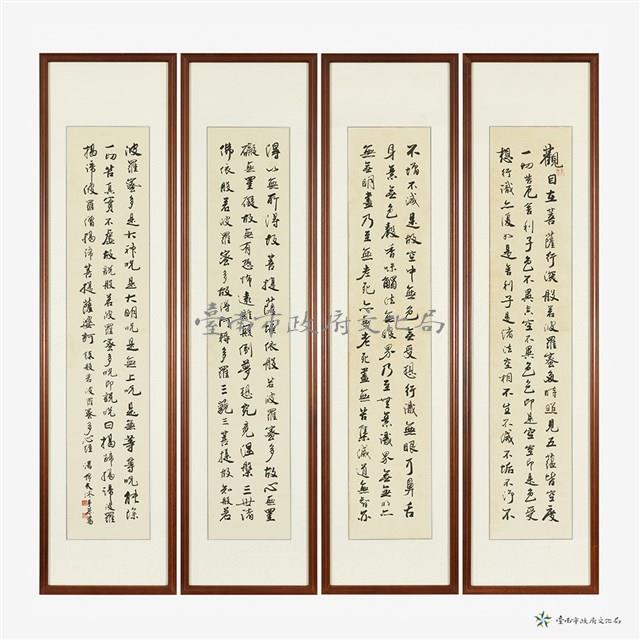 觀自在菩薩行深般若波羅蜜多時照見五蘊皆空度
一切苦厄舍利子色不異空空不異色色即是空空即是色受
想行識亦復如是舍利子是諸法空相不生不滅不垢不淨不
不增不減是故空中無色無受想行識無眼耳鼻舌
身意無色聲香味觸法無眼界乃至無意識界無無明亦
無無明盡乃至無老死亦無老死盡無苦集滅道無智亦
得以無所得故菩提薩埵依般若波羅蜜多故心無罣
礙無罣礙故無有恐怖遠離顛倒夢想究竟涅槃三世諸
佛依般若波羅蜜多故得阿耨多羅三藐三菩提故知般若
波羅蜜多是大神咒是大明咒是無上咒是無等等咒能除
一切苦真實不虛故說般若波羅蜜多咒即說咒曰揭諦揭諦波羅
揭諦波羅僧揭諦菩提薩婆訶 般若波羅蜜多心經
臺南市政府文化局
臺南市政府文化局